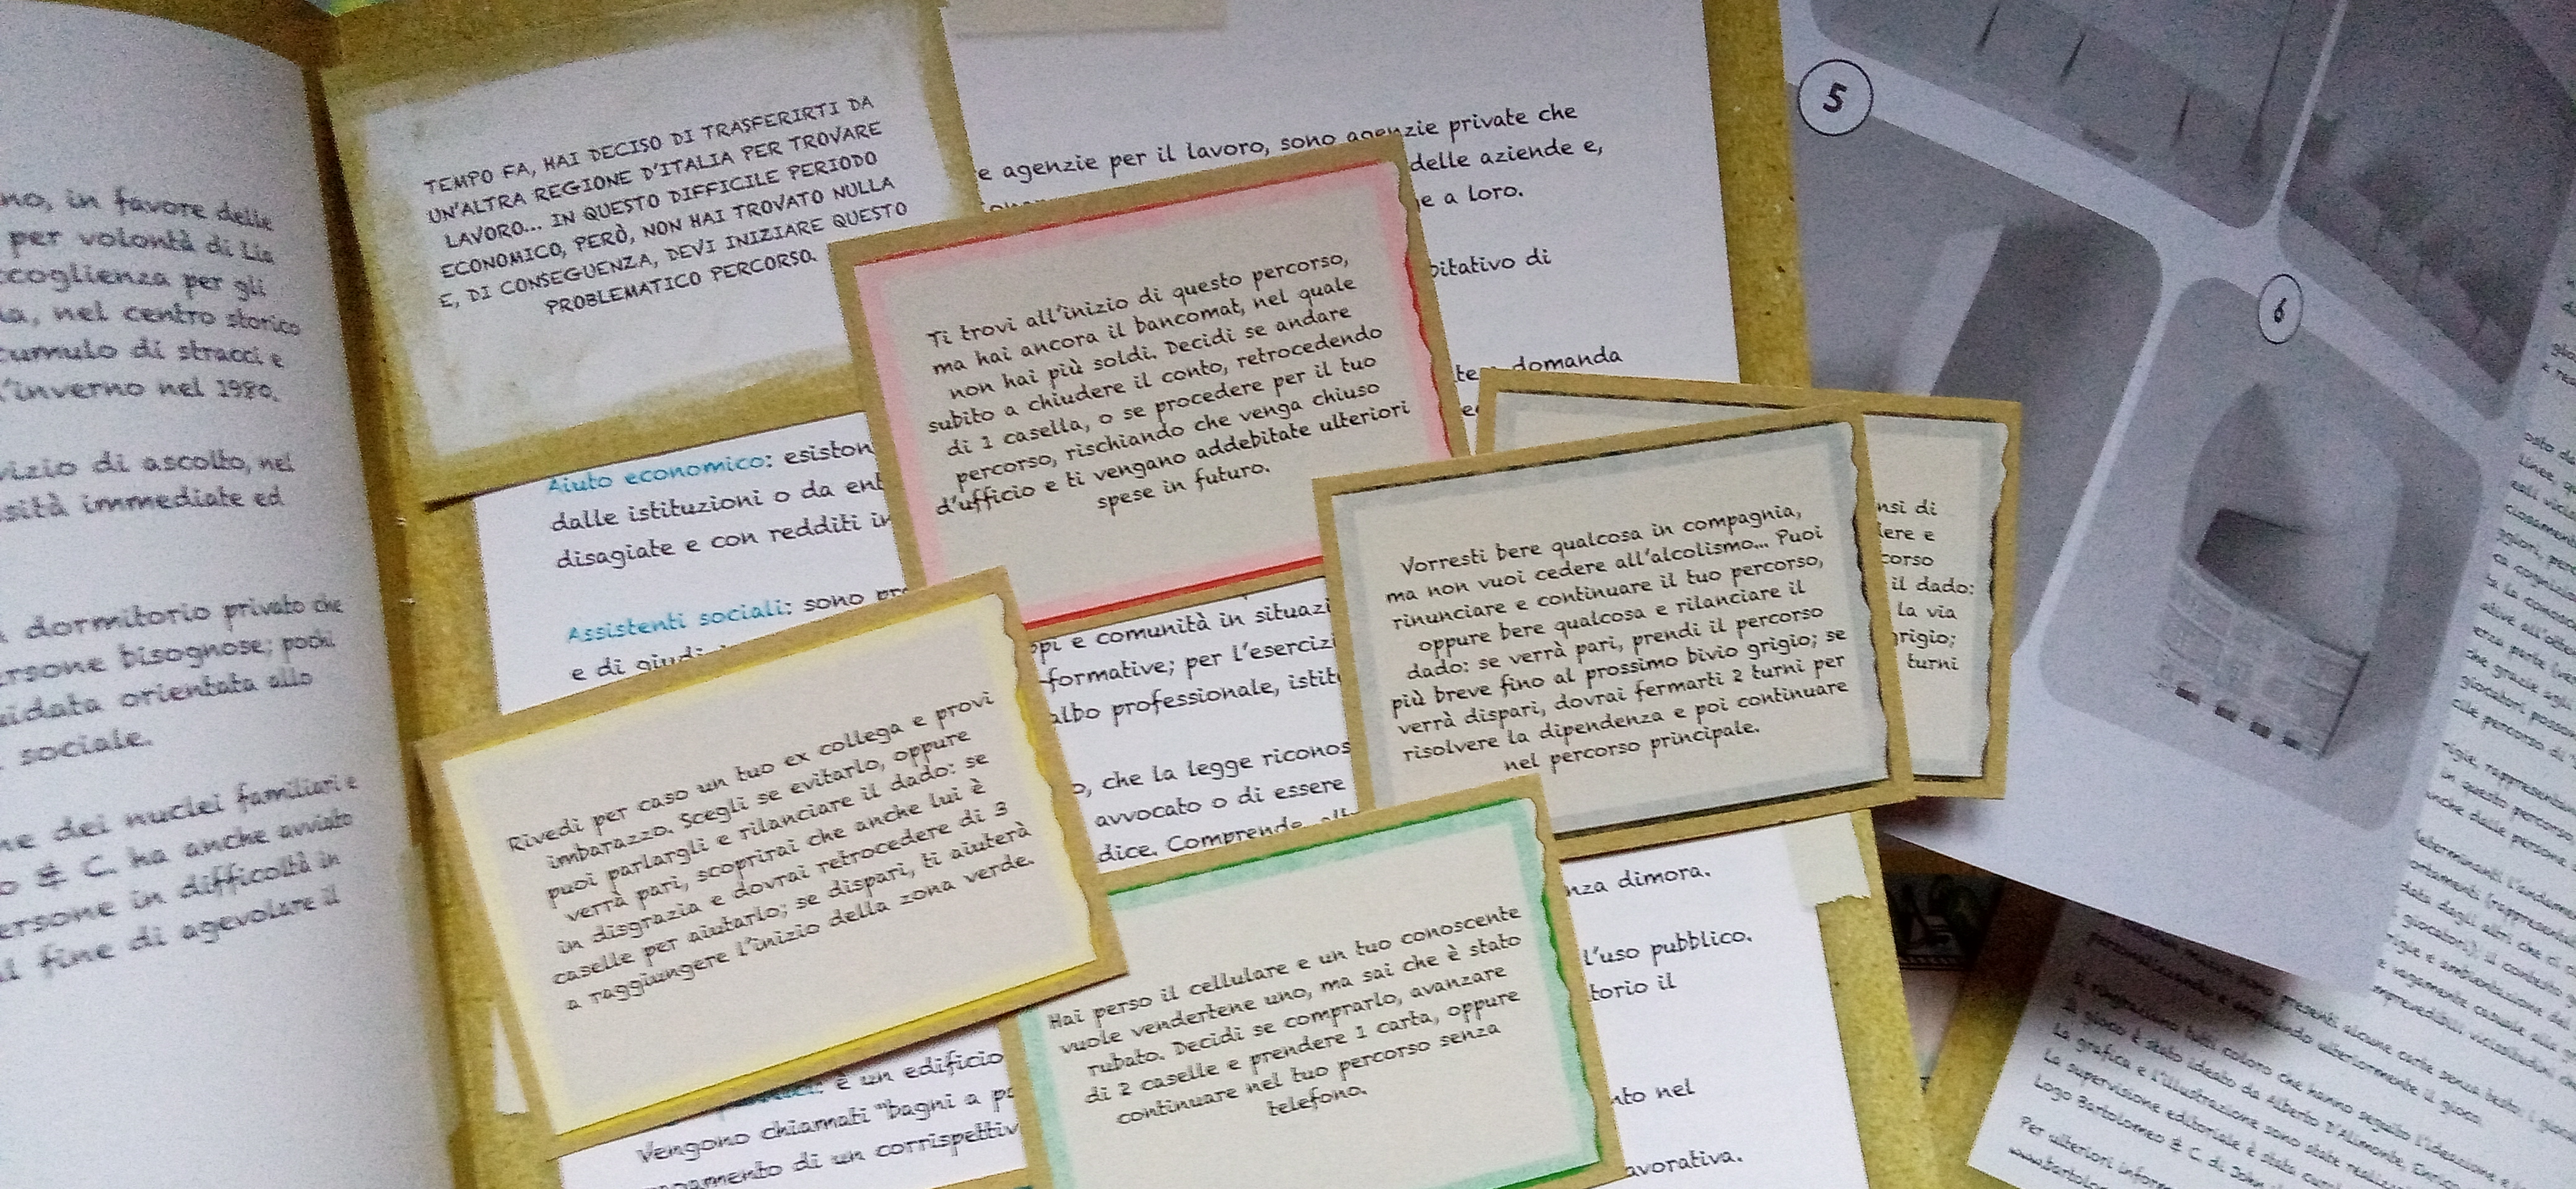 no, in favore delle
per volontà di Lia
ccoglienza per gli
la, nel centro storico
cumulo di stracci e
l'inverno nel 1980.
vizio di ascolto, nel
sità immediate ed
dormitorio privato che
ersone bisognose; pochi
uidata orientata allo
sociale.
ne dei nuclei familiari e
o & C. ha anche avviato
ersone in difficoltà in
al fine di agevolare il
TEMPO FA, HAI DECISO DI TRASFERIRTI DA
UN'ALTRA REGIONE D'ITALIA PER TROVARE
LAVORO... IN QUESTO DIFFICILE PERIODO
ECONOMICO, PERÒ, NON HAI TROVATO NULLA
E, DI CONSEGUENZA, DEVI INIZIARE QUESTO
PROBLEMATICO PERCORSO.
e agenzie per il lavoro, sono agenzie private che
delle aziende e,
e a loro.
bitativo di
domanda
Aiuto economico: esiston
dalle istituzioni o da ent
disagiate e con redditi in
Assistenti sociali: sono pro
e di giudi
ppi e comunità in situazi
formative; per l'esercizi
albo professionale, istit
o, che la legge riconos
avvocato o di essere
dice. Comprende
nza dimora.
l'uso pubblico.
torio il
nto nel
avorativa.
: è un edificio
Vengono chiamati "bagni a pa
agamento di un corrispettiv
Ti trovi all'inizio di questo percorso,
ma hai ancora il bancomat, nel quale
non hai più soldi. Decidi se andare
subito a chiudere il conto, retrocedendo
di 1 casella, o se procedere per il tuo
percorso, rischiando che venga chiuso
d'ufficio e ti vengano addebitate ulteriori
spese in futuro.
Vorresti bere qualcosa in compagnia,
ma non vuoi cedere all'alcolismo... Puoi
rinunciare e continuare il tuo percorso,
oppure bere qualcosa e rilanciare il
dado: se verrà pari, prendi il percorso
più breve fino al prossimo bivio grigio; se
verrà dispari, dovrai fermarti 2 turni per
risolvere la dipendenza e poi continuare
nel percorso principale.
nsi di
dere e
corso
il dado:
la via
grigio;
turni
Rivedi per caso un tuo ex collega e provi
imbarazzo. Scegli se evitarlo, oppure
puoi parlargli e rilanciare il dado: se
verrà pari, scoprirai che anche lui è
in disgrazia e dovrai retrocedere di 3
caselle per aiutarlo; se dispari, ti aiuterà
a raggiungere l'inizio della zona verde.
Hai perso il cellulare e un tuo conoscente
vuole vendertene uno, ma sai che è stato
rubato. Decidi se comprarlo, avanzare
di 2 caselle e prendere 1 carta, oppure
continuare nel tuo percorso senza
telefono.
5
6
presenti alcune carte senza testo: i
ampliando ulteriormente il gioco.
Si ringraziano tutti coloro che hanno seguito l'ideazione e
Il gioco è stato ideato da Alberto D'Alimonte, Enrico
La grafica e l'illustrazione sono state realizz
La supervisione editoriale è stata cur
Logo Bartolomeo & C. di John
Per ulteriori inform
www.bartolo